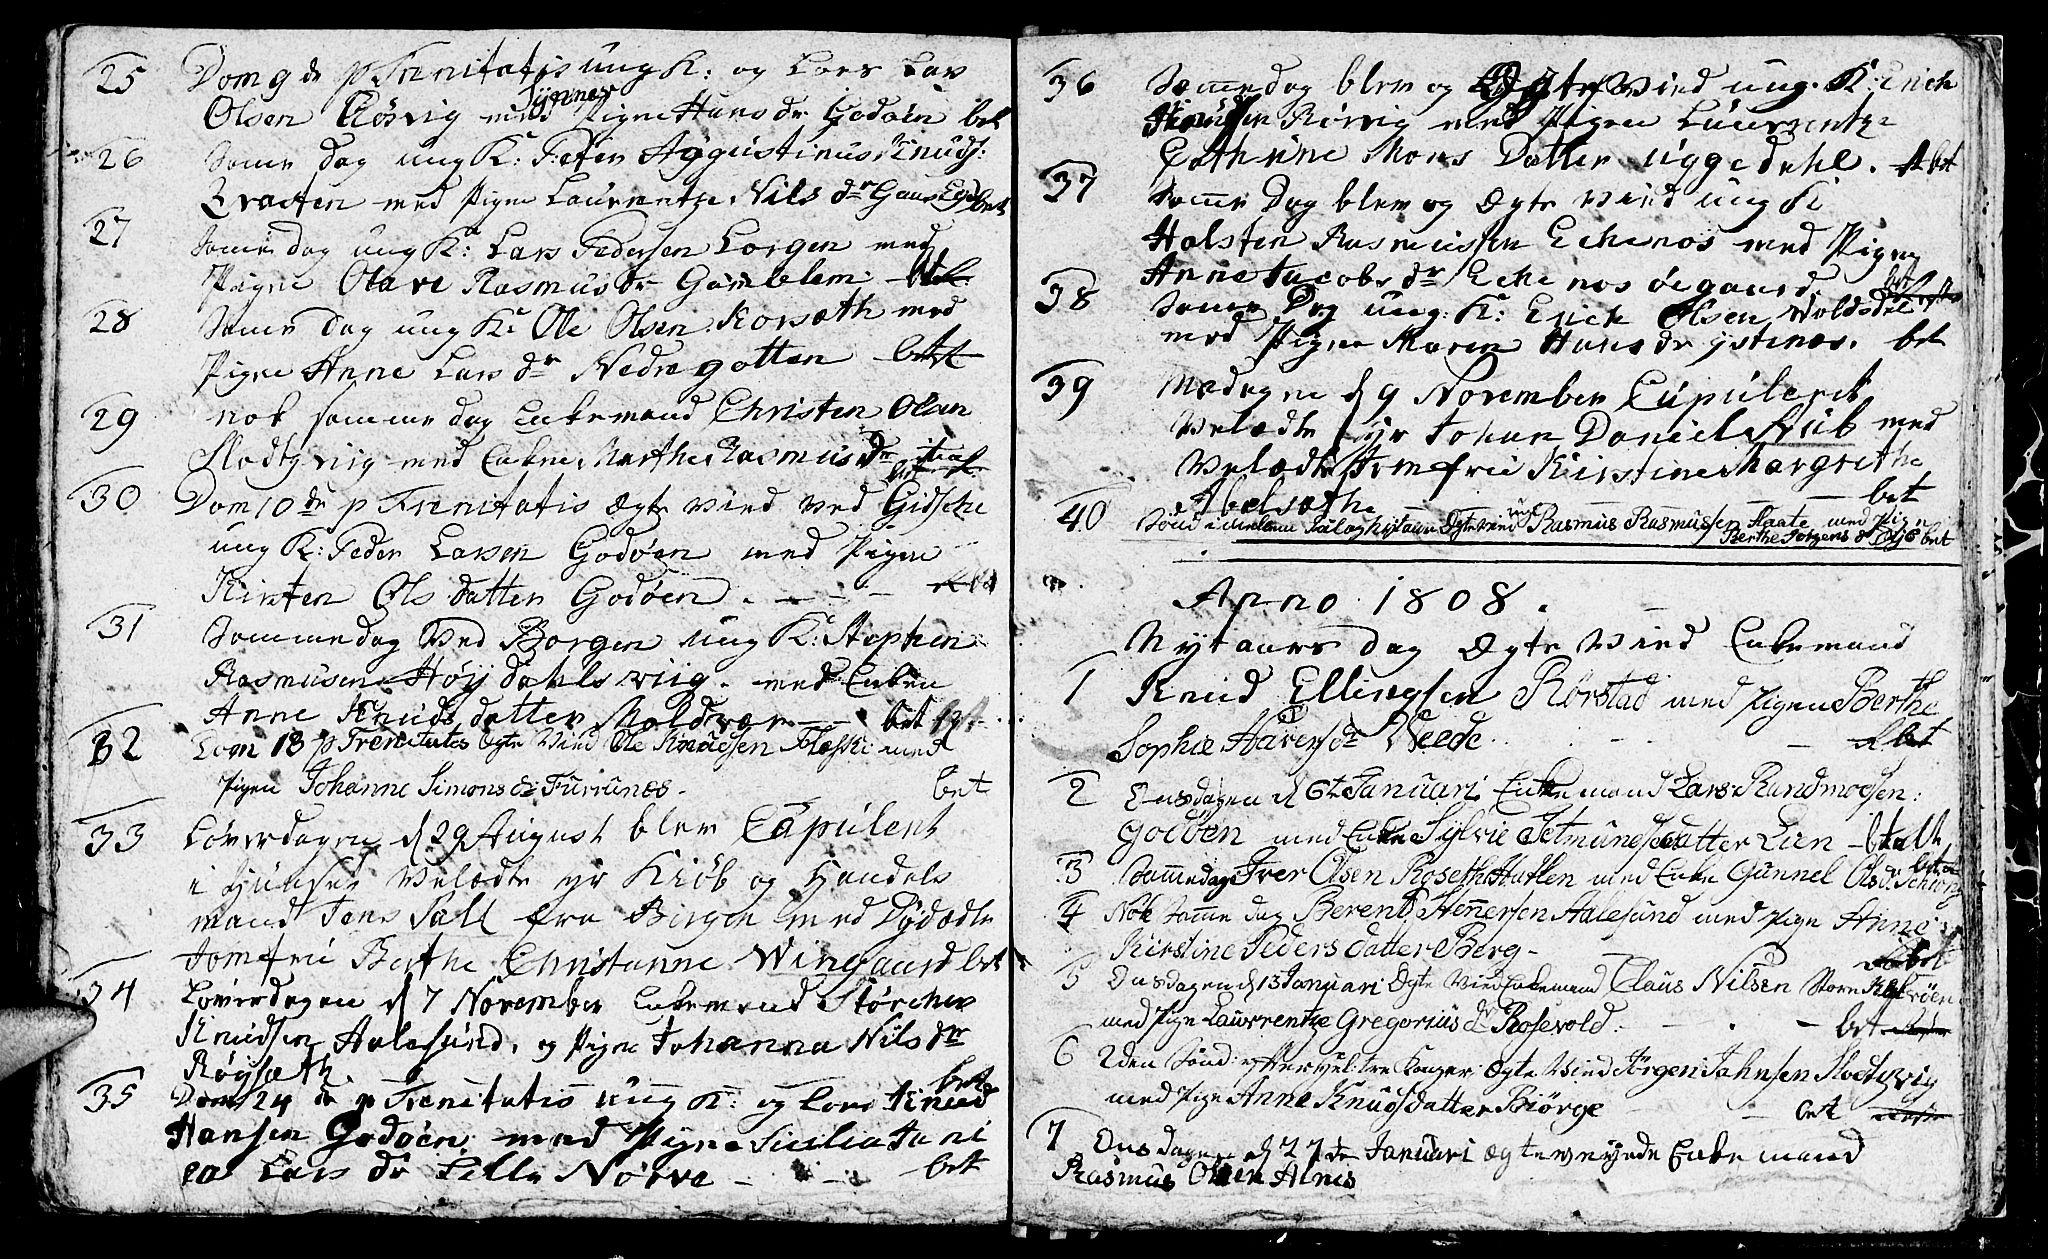 25 Dom 9 de p Trenitatis ung K: og Lors Lars
Olsen Rösvig med Pigne Hans dr Godöen bet
26 Samme dag ung K: Peter Aggustinus Knuds:
med Pigne Laurentze Nils dr bet
27 Samme dag ung K: Lars Pedersen Lorgen med
Pigne Olave Rasmus dr Gamlem bet
28 Samme dag ung K: Ole Olsen Korsæth med
Pigne Anne Lars dr Nedregotten bet
29 nok samme dag Enkemand Christen Olsen
Slodtzvig med Enken Marthe Rasmus dr
30 Dom 10 de p Trenitatis Ægte Vied Ved Gidsche
ung K: Peder Larsen Godöen med Pigen
Kirsten Ols datter Godöen . — — —
31 Sammedag Ved Borgen ung K: Stephen
Rasmusen Höydahls viig . med Enken
Anne Knuds datter Moldvær — — bet
32 Dom 18 p Trenitatis Ægte Vied Ole Knudsen Flaske med
Pigen Johanne Simons dr Furunes . bet
33 Löverdagen d 29 August blev Capulert
i hjunset Velædle Hr Kiöb og Handels
mand Jens Fall fra Birgen med Dydædle
Jomfrü Berthe Christanne Wingaard bet
34 Loverdagen d 7 November Enkemand Störcher
Knudsen Aalesund, og Pigne Johanna Nils dr
Röysæth bet
35 Dom 24 de p Trenitatis ung K: og Lors Knud
Hansen Godöen med Pigne Sicilia Jani
ca Lars dr Lille Nörve — — bet
36 Sammedag blev og Ægte Vied ung K: Erich
Knudsen Rövig med Pigen Laurentze
Cathrine Mons Datter Uggedahl . bet
37 Samme Dag blev og Ægte Vied ung K:
Holsten Rasmussen Echenos med Pigen
Anne Jacobs dr Echenos öegaard bet
38 Samme Dag ung: K: Erich Olsen Voldsdal
med Pigen Maren Hans dr ystenes . bet
39 Mandagen d 9 November Cupulerit
Velædle Hr Johan Daniel Stüb med
Velædle Jomfrü Kirstine Margrethe
Abelsæth — — bet
40 Sönd: imellem Jul og Nytaar Ægte Vied ung K: Rasmus Rasmussen Slaate med Pigen
Berthe Jörgens dr Ousjö bet
Anno 1808 .
Nytaars dag Ægte Vied Enkemand
1 Knud Ellingsen Rörstad med Pigen Berthe
Sophie Havens dr Veede . — bet
2 Onsdagen d 6te Januari Enkemand Lars Randmodsen:
Godöen med Enke Sylvie Jetmundsdatter Lien — btalt
3 Sammedag Iver Olsen Roseth Hatlen med Enke Gunnel Ols dr Schiong bet
4 Nok Samme dag Berent Stenersen Aalesund med Pige Anne
Kirstine Peders datter Berg — bet
5 Onsdagen d 13 Januari Ægte Vied Enkemand Claus Nilsen Store Kalvöen
med Pige Lawrentze Gregorius dr Rosevold . — . — bet
6 2den Sönd: efter hel: tre Konger Ægte Vied Jörgen Jahnsen Slodtzvig
med Pige Anne Knudsdatter Biörge — bet
7 Onsdagen d 27 de Januari Ægteveyede Enkemand
Rasmus Olsen Alnes